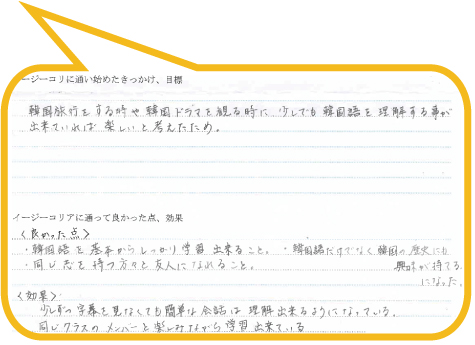 ージーコリに通い始めたきっかけ、目標
韓国旅行をする時や韓国ドラマを観る時に、少しでも韓国語を理解する事が
出来ていれば楽しいと考えたため。
イージーコリアに通って良かった点、効果
〈良かった点〉
・韓国語を基本からしっかり学習出来ること。 ・韓国語だけでなく韓国の歴史にも
・同じ志を持つ方々と友人になれること。 興味が持てる
になった。
〈効果〉
少しずつ字幕を見なくても簡単な会話は理解出来るようになっている。
同じクラスのメンバーと楽しみながら学習出来ている